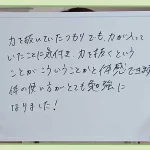 力を抜いていたつもりでも、力が入って
いたことに気付き、力を抜くという
ことがこういうことかと体感できます
体の使い方がとても勉強に
なりました！